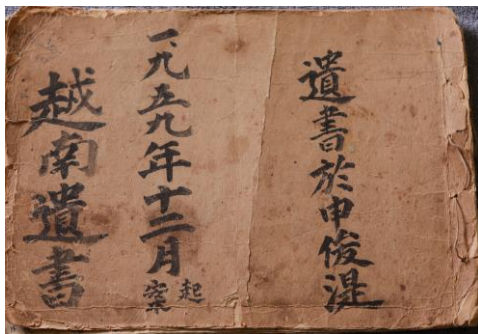 遺書於申俊湜
一九五九年十二月起案
越南遺書